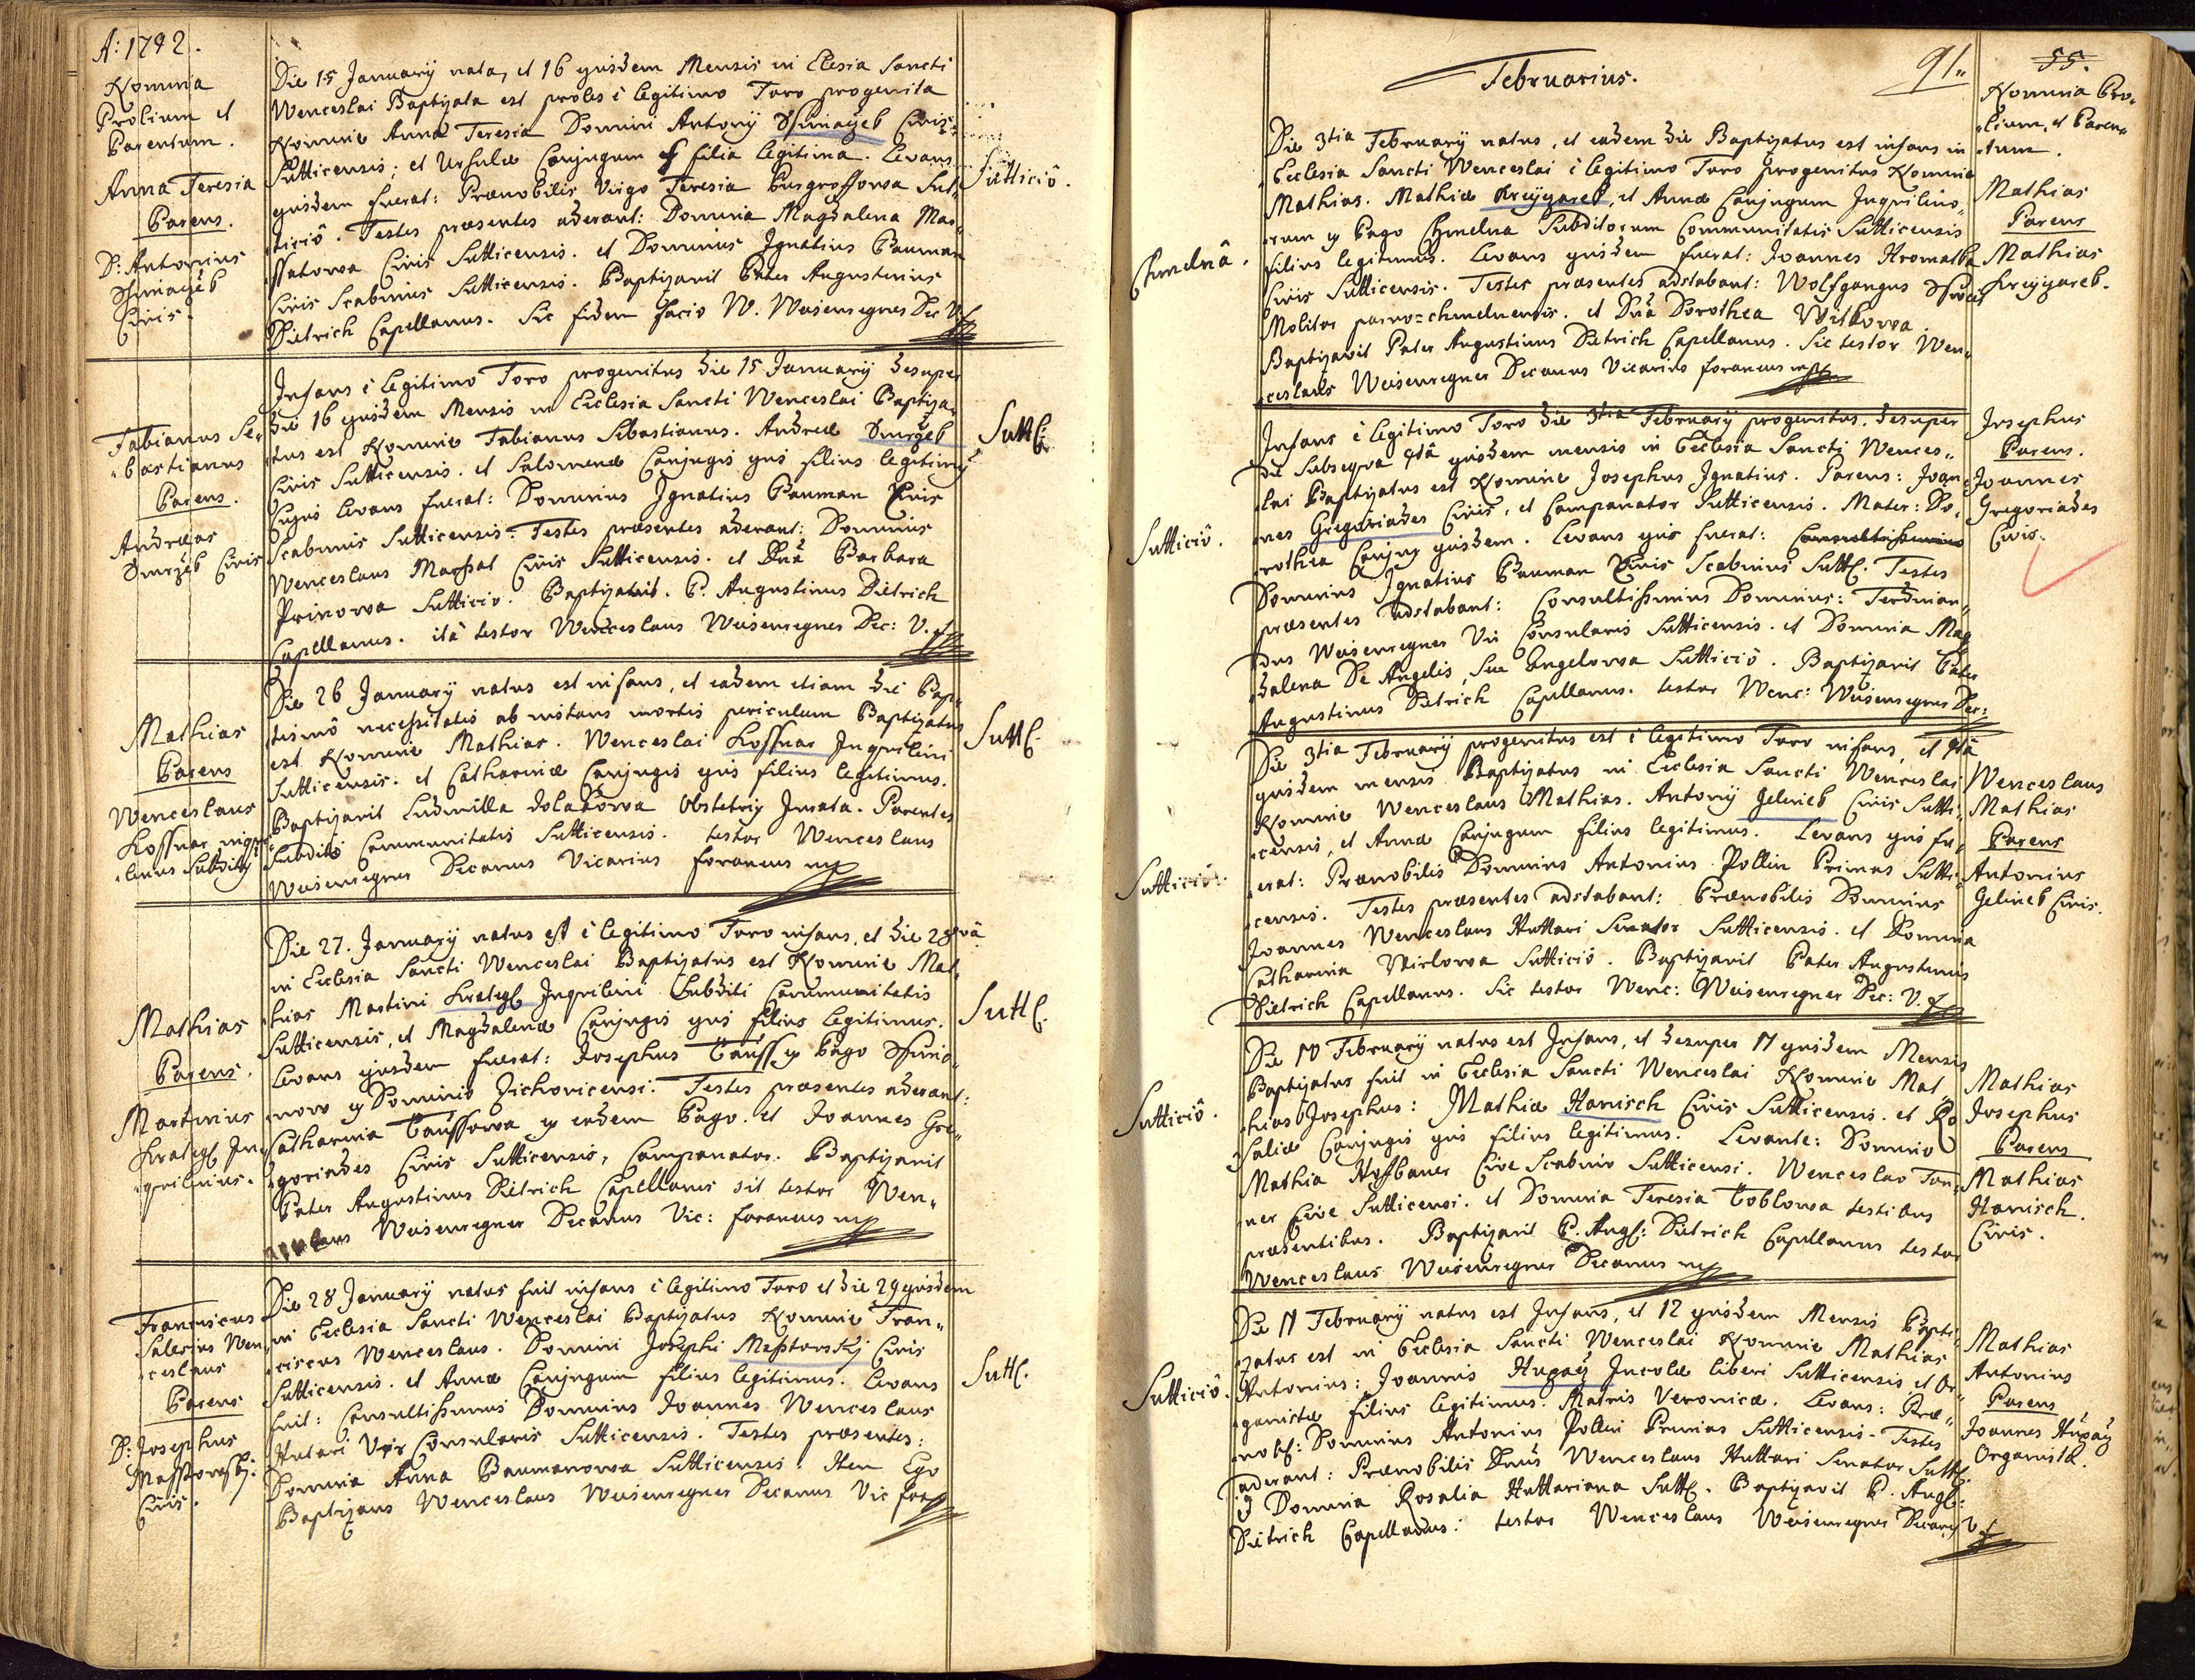 A: 1742.
Nomina
Prolium et
Parentum.
Anna Teresia
Parens.
D: Antonius
Civis.
Die 15 Januarÿ nata, et 16 ejusdem Mensis in Eclesia Sancti
Wenceslai Baptizata est proles è legitimo Toro progenita
Nomine Anna Teresia Domini Antonÿ Civis
Sutticensis; et Ursulæ Conjugum filia legitima. Levans
ejusdem fuerat: Prænobilis Virgo Teresia Sut„
„ticiô. Testes præsentes aderant: Domina Magdalena Mar„
Civis Sutticensis. et Dominus Ignatius Bauman
Civis Scabinus Sutticensis. Baptizavit Pater Augustinus
Dietrich Capellanus. Sic fidem facio W. Weisenregner Dec V.
Sutticiô.
Fabianus Se„
„bastianus
Parens.
Andreas
Smržek Civis
Infans è legitimo Toro progenitus die 15 Januarÿ desuper
die 16 ejusdem Mensis in Ecclesia Sancti Wenceslai Baptiza„
„tus est Nomine Fabianus Sebastianus. Andreæ Smržek
Civis Sutticensis. et Salomenæ Conjugis ejus filius legitimus
Cujus levans fuerat: Dominus Ignatius Bauman Civis
Scabinus Sutticensis. Testes præsentes aderant: Dominus
Wenceslaus Marssal Civis Sutticensis. et Dna Barbara
Prinowa Sutticio. Baptizavit. P. Augustinus Dietrich
Capellanus. ità testor Wenceslaus Weisenregner Dec: V.
Sutt:
Mathias
Parens
Wenceslaus
Kossnar inqvi„
„linus Subditus
Die 26 Januarÿ natus est infans, et eadem etiam die Bap„
„tismô necessitatis ob instans mortis periculum Baptizatus
est Nomine Mathias. Wenceslai Kossnar Inqvilini
Sutticensis. et Catharinæ Conjugis ejus filius legitimus.
Baptizavit Ludmilla Obstetrix Jurata. Parentes
Subditi Communitatis Sutticensis. testor Wenceslaus
Weisenregner Decanus Vicarius foraneus mp
Sutt:
Mathias
Parens.
Martinus
In„
„qvilinus.
Die 27. Januarÿ natus est è legitimo Toro infans, et die 28vâ
in Ecclesia Sancti Wenceslai Baptizatus est Nomine Mat„
„hias Martini Inqvilini Subditi Communitatis
Sutticensis, et Magdalenæ Conjugis ejus filius legitimus.
Levans ejusdem fuerat: Josephus ex Pago
ex Dominio Zichovicensi. Testes præsentes aderant:
Catharina ex eodem Pago. et Joannes Gre„
„goriades Civis Sutticensis, Campanator. Baptizavit
Pater Augustinus Dietrich Capellanus sit testor Wen„
„ceslaus Weisenregner Decanus Vic: foraneus mp
Sutt:
Franciscus
Salesius Wen„
„ceslaus
Parens
D: Josephus
Civis.
Die 28 Januarÿ natus fuit infans è legitimo Toro et die 29 ejusdem
in Ecclesia Sancti Wenceslai Baptizatus Nomine Fran„
„ciscus Wenceslaus. Domini Josephi Civis
Sutticensis. et Annæ Conjugum filius legitimus. Levans
fuit: Consultissimus Dominus Joannes Wenceslaus
Huttari Vir Consularis Sutticensis. Testes præsentes:
Domina Anna Baumanowa Sutticensis: Item Ego
Baptizans Wenceslaus Weisenregner Decanus Vic for
Sutt:
Februarius.
91„
55.
Nomina Pro„
„lium, et Paren„
„tum.
Chmelnâ.
Die 3tia Februarÿ natus, et eadem die Baptizatus est infans in
Ecclesia Sancti Wenceslai è legitimo Toro progenitus Nomine
Mathias. Mathiæ Kreyzarek, et Annæ Conjugum Inqvilino„
„rum ex Pago Chmelna Subditorum Communitatis Sutticensis
filius legitimus. Levans ejusdem fuerat: Joannes Hromatka
Civis Sutticensis. Testes præsentes adstabant: Wolfgangus
Molitor et Dna Dorothea Witkowa.
Baptizavit Pater Augustinus Dietrich Capellanus. Sic testor Wen„
„ceslaus Weisenregner Decanus Vicarius foraneus mp
Mathias
Parens
Mathias
Kreyzarek.
Sutticiô.
Infans è legitimo Toro die 3tia Februarÿ progenitus, desuper
die Subseqva 4tâ ejusdem mensis in Ecclesia Sancti Wences„
„lai Baptizatus est Nomine Josephus Ignatius. Parens: Joan„
„nes Gregoriades Civis, et Campanator Sutticensis. Mater: Do„
„rothea Conjux ejusdem. Levans ejus fuerat: Consultissimus
Dominus Ignatius Bauman Civis Scabinus Sutt: Testes
præsentes adstabant: Consultissimus Dominus: Ferdinan„
„dus Weisenregner Vir Consularis Sutticensis. et Domina Mag„
„dalena De Angelis, Seu Angelowa Sutticiô. Baptizavit Pater
Augustinus Dietrich Capellanus. testor Wenc: Weisenregner Dec:
Josephus
Parens.
Joannes
Gregoriades
Civis.
Sutticiô.
Die 3tia Februarÿ progenitus est è legitimo Toro infans, et 4tâ
ejusdem mensis Baptizatus in Ecclesia Sancti Wenceslai
Nomine Wenceslaus Mathias. Antonÿ Gelinek Civis Sutti„
„censis, et Annæ Conjugum filius legitimus. Levans ejus fu„
„erat: Prænobilis Dominus Antonius Pollin Primas Sutti„
„censis. Testes præsentes adstabant: Prænobilis Dominus
Joannes Wenceslaus Huttari Senator Sutticensis. et Domina
Catharina Sutticiô. Baptizavit Pater Augustinus
Dietrich Capellanus. Sic testor Wenc: Weisenregner Dec: V.
Wenceslaus
Mathias
Parens
Antonius
Gelinek Civis.
Sutticiô.
Die 10 Februarÿ natus est Infans, et desuper 11 ejusdem Mensis
Baptizatus fuit in Ecclesia Sancti Wenceslai Nomine Mat„
„hias Josephus: Mathiæ Hanisch Civis Sutticensis. et Ro„
„saliæ Conjugis ejus filius legitimus. Levante: Domino
Mathia Hoffbauer Cive Scabino Sutticensi. Wenceslao Ton„
„ner Cive Sutticensi. et Domina Teresia testibus
præsentibus. Baptizavit P. Aug: Dietrich Capellanus testor
Wenceslaus Weisenregner Decanus mp
Mathias
Josephus
Parens
Mathias
Hanisch.
Civis.
Sutticiô.
Die 11 Februarÿ natus est Infans, et 12 ejusdem Mensis Bapti„
„zatus est in Ecclesia Sancti Wenceslai Nomine Mathias
Antonius: Joannis Incolæ liberi Sutticensis et Or„
„ganistæ filius legitimus. Matris Veronicæ. Levans: Præ„
„nob: Dominus Antonius Pollin Primas Sutticensis. Testes
aderant: Prænobilis Dnus Wenceslaus Huttari Senator Sutt:
& Domina Rosalia Huttariana Sutt: Baptizavit P. Aug:
Dietrich Capellanus: testor Wenceslaus Weisenregner Decanus V.
Mathias
Antonius
Parens
Joannes
Organista.